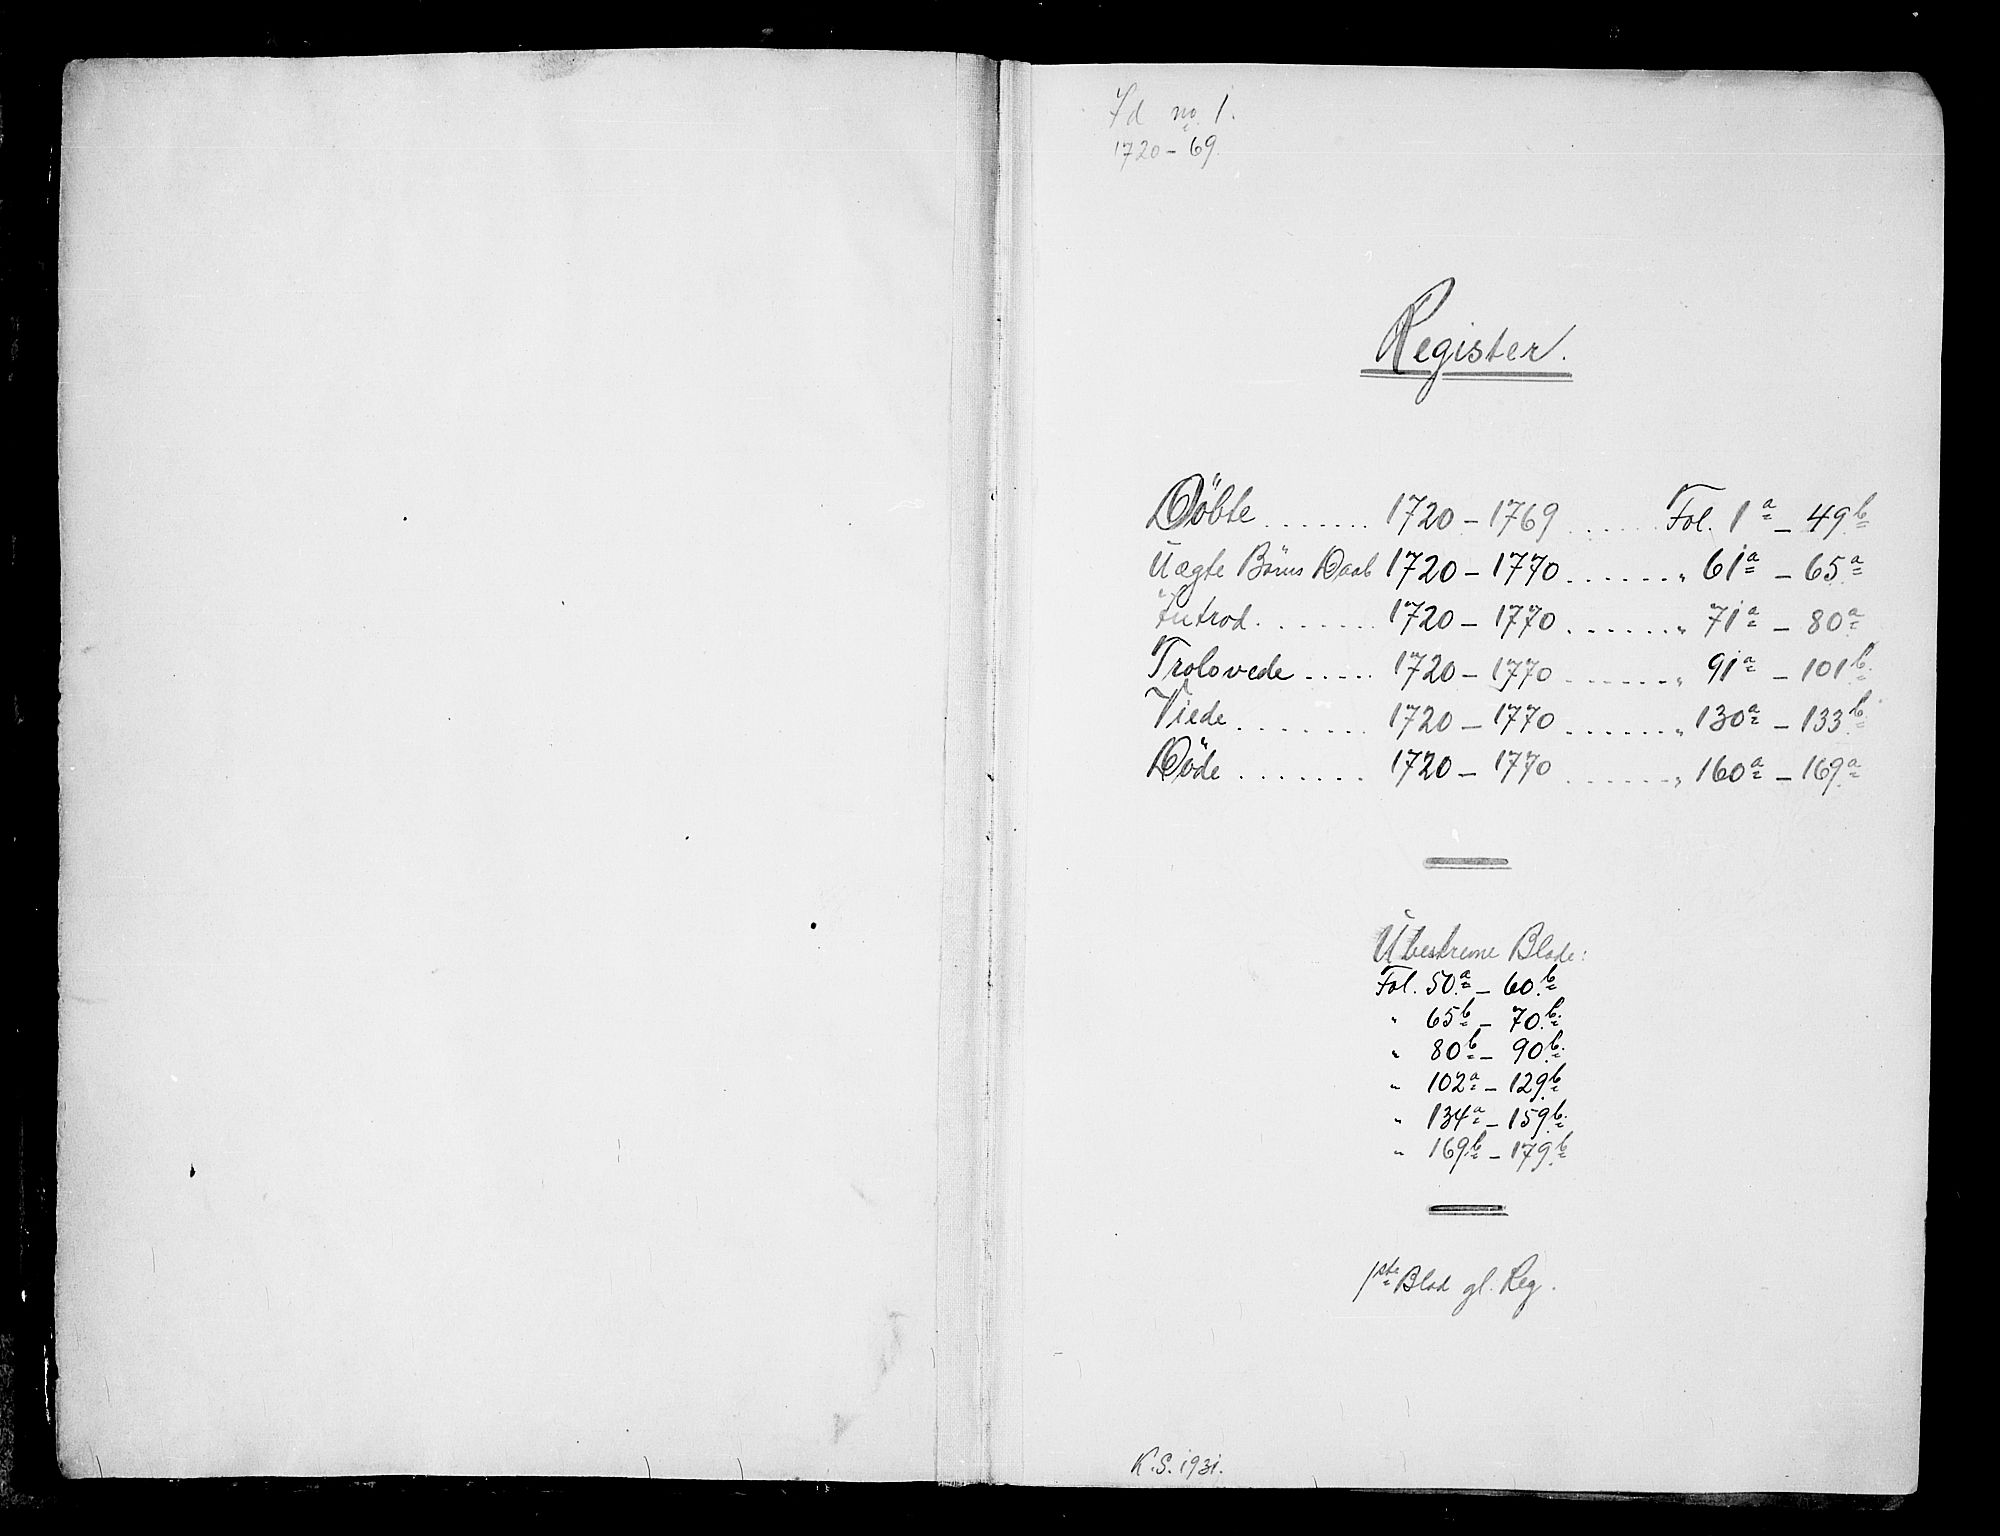 Id no. 1.
1720 - 69.
Register.
Döbte ....... 1720 - 1769 ...... Fol. 1a - 49b
Uægte Börns Daab 1720 - 1770 ....... " 61a - 65a
Introd. ....... 1720 - 1770 ....... " 71a - 80a
Trolovede ..... 1720 - 1770 ....... " 91a - 101b
Viede ........ 1720 - 1770 ....... " 130a - 133b
Döde ........ 1720 - 1770 ....... " 160a - 169a
Ubeskrevne Blade:
Fol. 50a - 60b
" 65b - 70b
" 80b - 90b
" 102a - 129b
" 134a - 159b
" 169b - 179b
1ste Blad gl. Reg.
K.S. 1931.